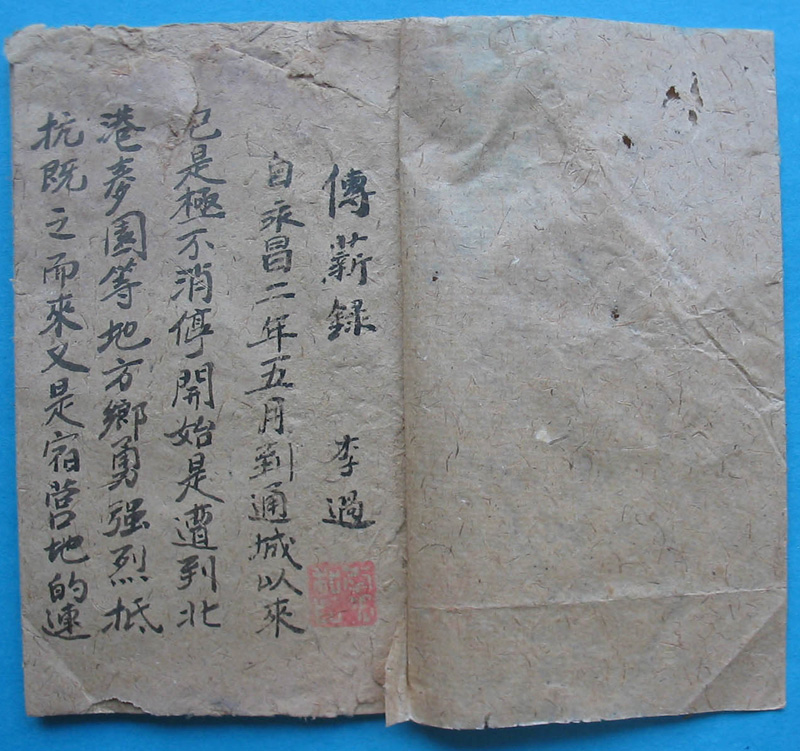 傳薪録 李過
自永昌二年五月到通城以來
已是極不消停開始是遭到北
港麦園等地方鄉勇强烈抵
抗既之而來又是宿营地的連